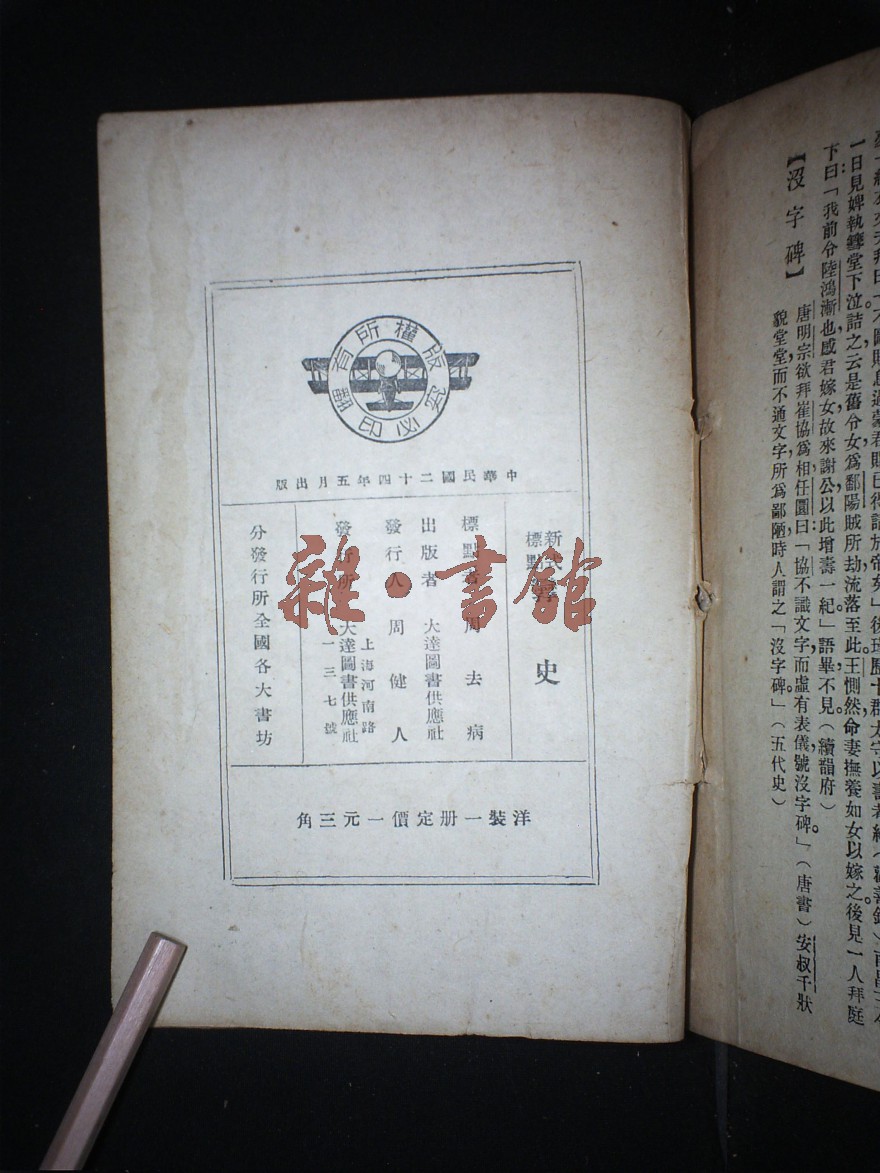 版權所有
翻印必究
中華民國二十四年五月出版
新式
標點
史
標點者 周去病
出版者 大達圖書供應社
發行人 周健人
發行所 大達圖書供應社
上海河南路
一三七號
分發行所全國各大書坊
洋裝一册定價一元三角
雜·書館
一日見婢執籜堂下泣詰之云是舊令女爲鄱陽賊所劫流落至此王惻然命妻撫養如女以嫁之後見一人拜庭
下曰「我前令陸鴻漸也感君嫁女故來謝公以此增壽一紀」語畢不見(續韻府)
【沒字碑】
唐明宗欲拜崔協爲相任圜曰「協不識文字而虛有表儀號沒字碑。」(唐書)安叔千狀
貌堂堂而不通文字所爲鄙陋時人謂之「沒字碑」(五代史)